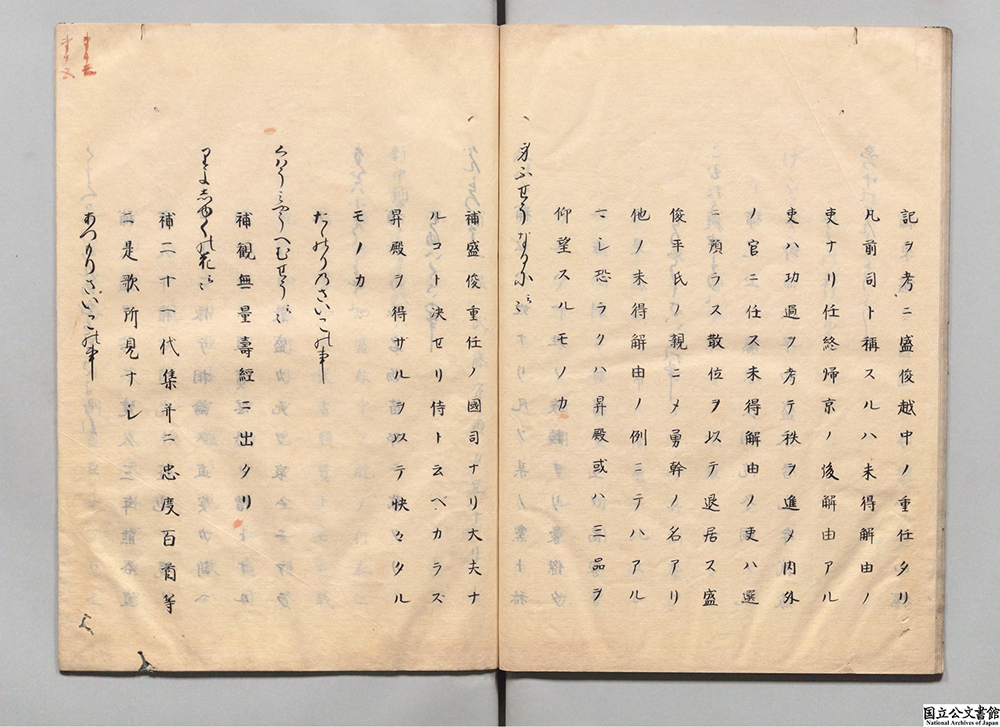 記ヲ考ニ盛俊越中ノ重任タリ
凡前司ト稱スルハ未得解由ノ
吏ナリ任終帰京ノ後解由アル
吏ハ功過ヲ考テ秩ヲ進メ内外
ノ官ニ任ス未得解由ノ吏ハ選
ニ預ラス散位ヲ以テ退居ス盛
俊平氏ノ親ニメ勇幹ノ名アリ
他ノ未得解由ノ例ニテハアル
マシ恐ラクハ昇殿或ハ三品ヲ
仰望スルモノカ
補盛俊重任ノ國司ナリ大夫ナ
ルコト決セリ侍ト云ベカラズ
昇殿ヲ得ザルヲ以テ快々タル
モノカ
たゝのりのさいこの事
補観無量壽經ニ出タリ
補二十一代集并ニ忠度百首等
ニ是歌所見ナシ
あつもりさいこの事
国立公文書館
National Archives of Japan